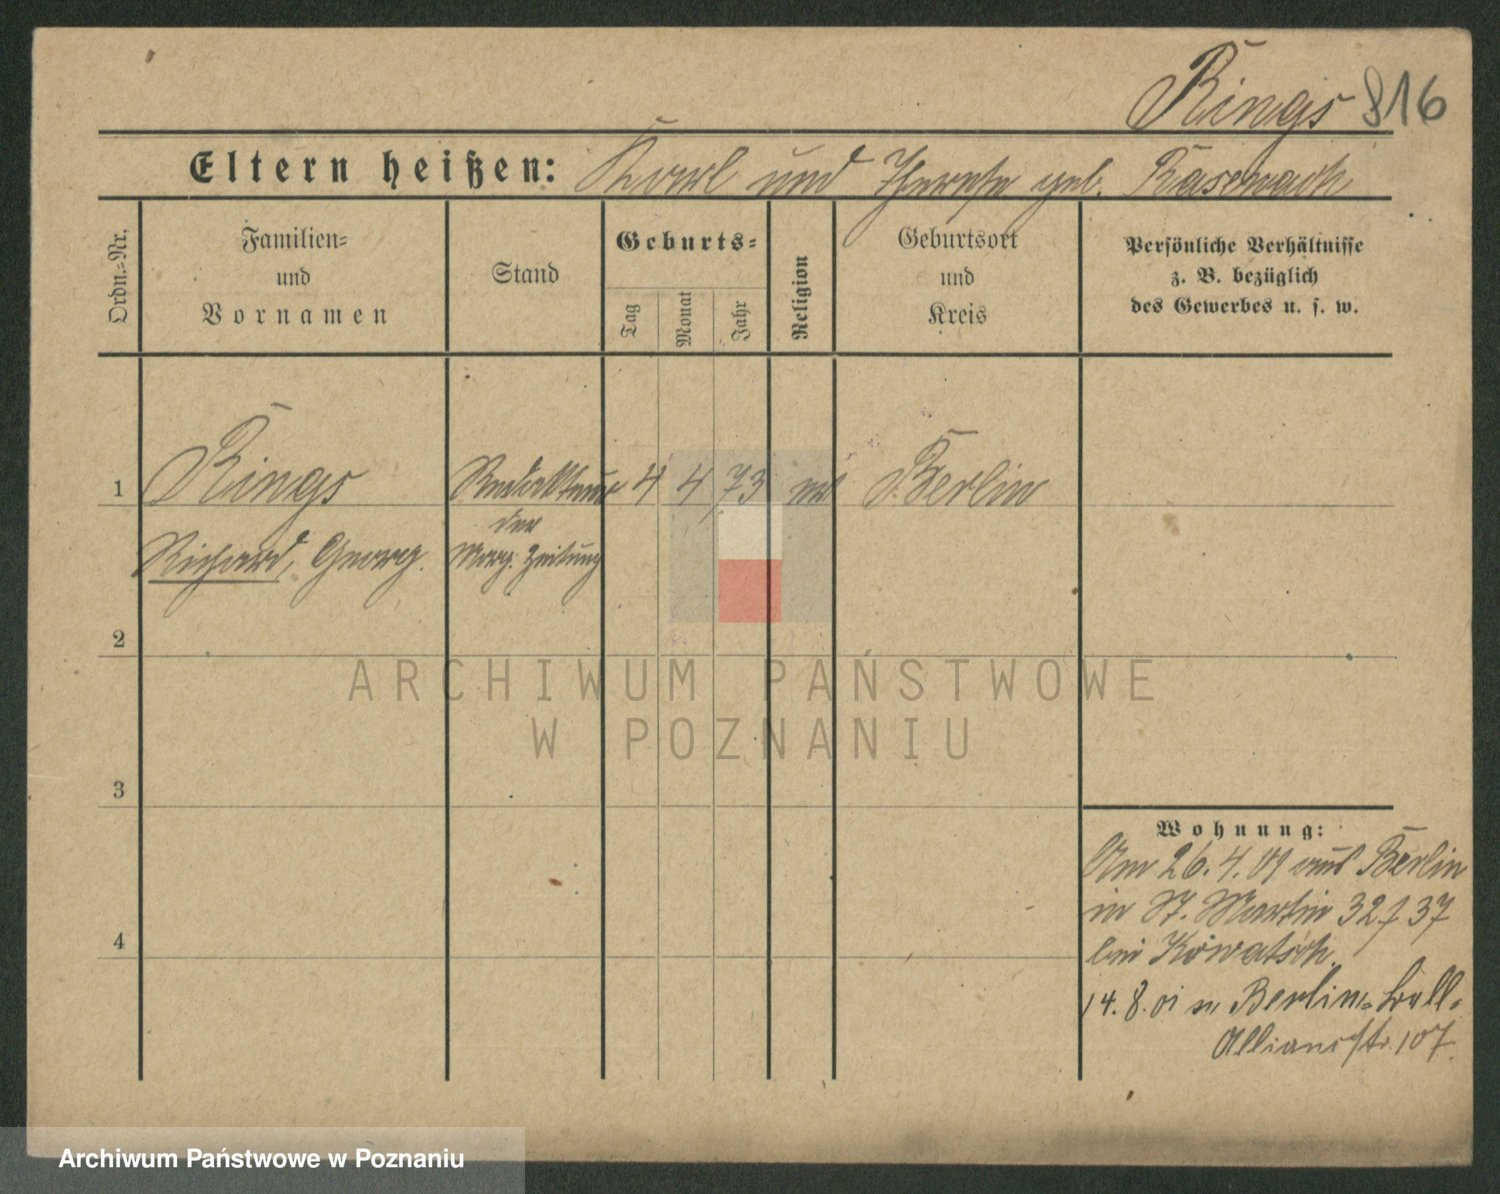 Rings 816
Eltern heißen: Karl und Therese geb.
Ordn.=Nr.
Familien=
und
Vornamen
Stand
Geburts=
Tag
Monat
Jahr
Religion
Geburtsort
und
Kreis
Persönliche Verhältnisse
z. B. bezüglich
des Gewerbes u. s. w.
1
Rings
Redakteur
4
4
73
Berlin
der
Richard, Georg.
Zeitung
2
3
4
Wohnung:
Am 26.4.01 aus Berlin
in St. Martin 32 37
bei
14.8.01 n Berlin= Bell=
Alliancestr. 107
ARCHIWUM PAŃSTWOWE
W POZNANIU
Archiwum Państwowe w Poznaniu